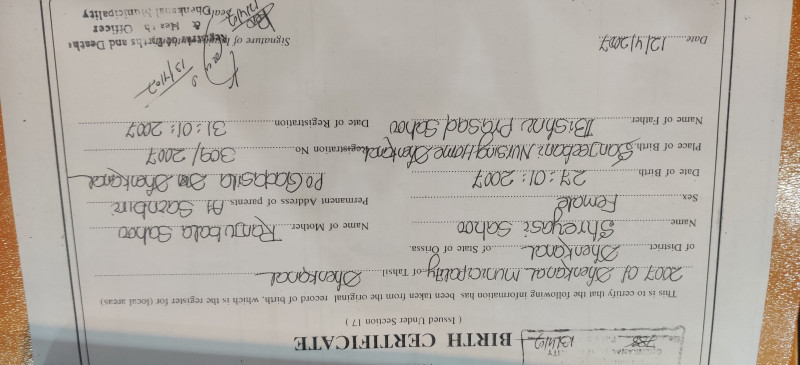 BIRTH CERTIFICATE
( Issued Under Section 17 )
This is to certify that the following information has been taken from the original record of birth, which is the register for (local areas)
2007 of Dhenkanal municipality of Tahsil Dhenkanal
of District Dhenkanal of State of Orissa.
Name Shreyasi Sahoo Name of Mother Ranjubala Sahoo
Sex Female Permanent Address of parents At Sarnbiri
Date of Birth 27:01:2007 Po Gadasila Dhenkanal
Place of Birth Sanjeebani Nursing Home Dhenkanal Registration No. 309/2007
Name of Father Bishnu Prasad Sahoo Date of Registration 31:01:2007
13/4/07
Date 12/4/2007 Signature of
Registrar Births and Deaths
& Health Officer
Dhenkanal Municipality
Seal